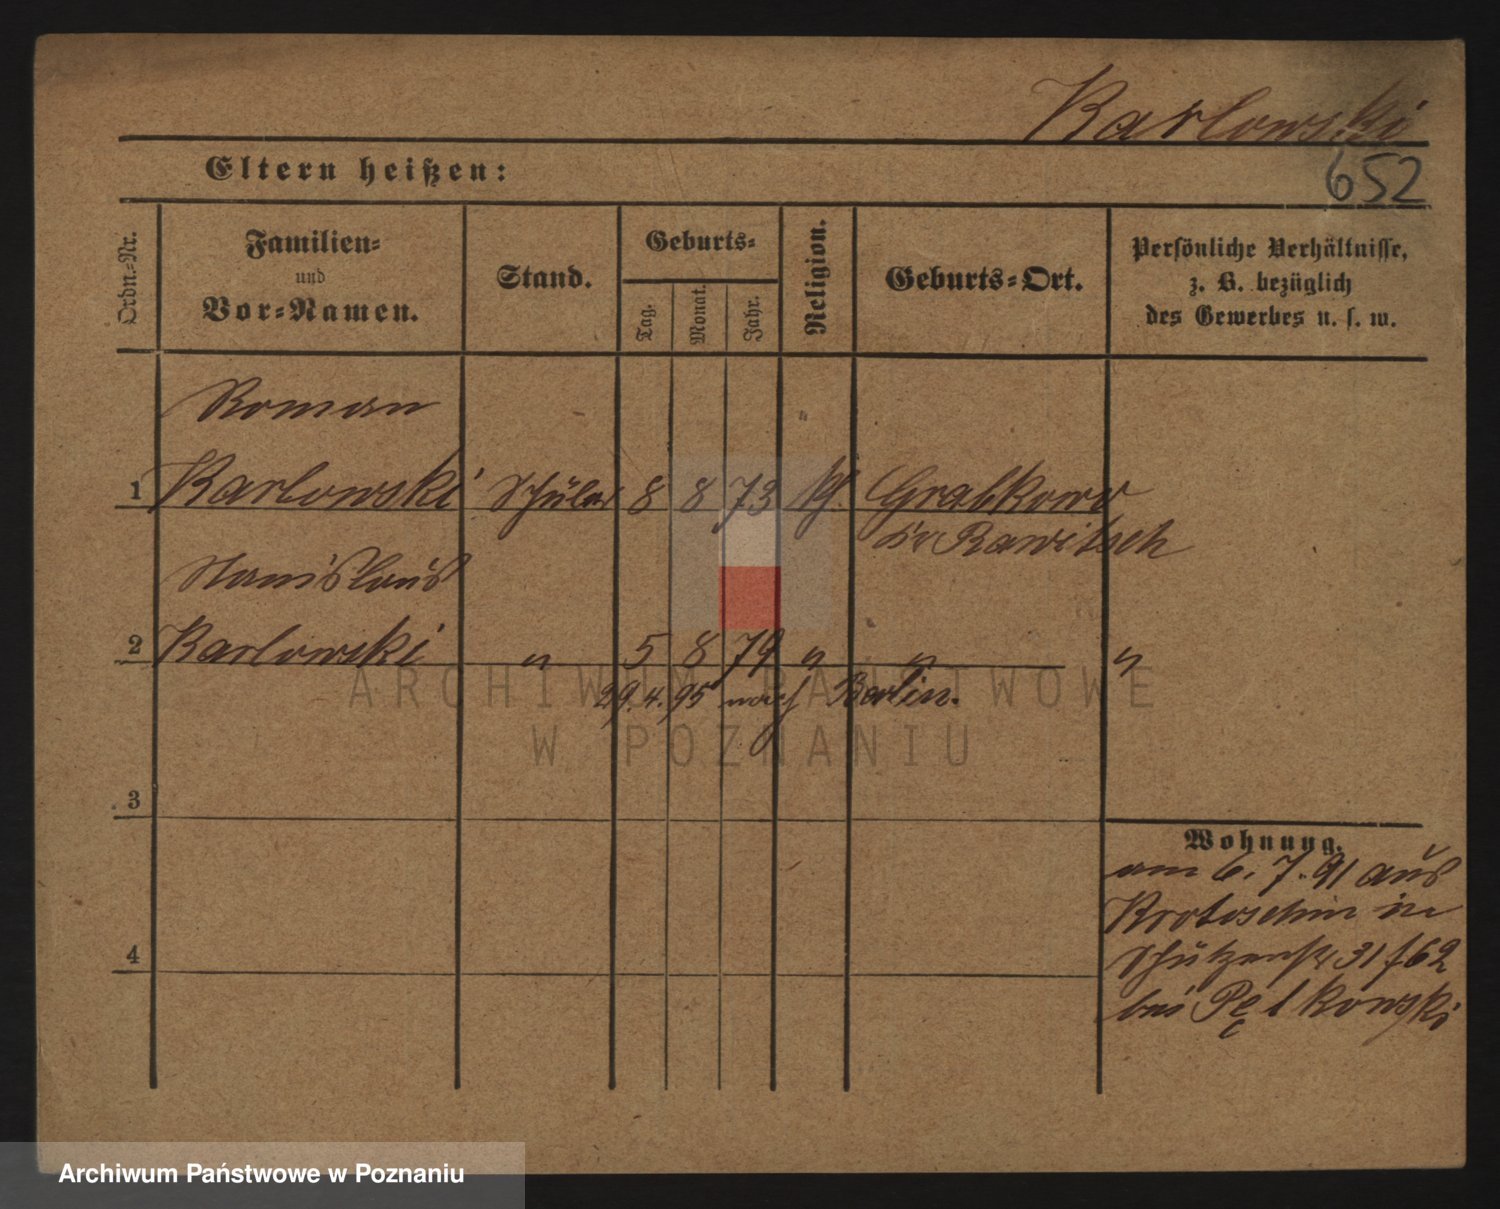 Karlowski
Eltern heißen:
652
Ordn.-Nr.
Familien-
und
Vor-Namen.
Stand.
Geburts-
Tag.
Monat.
Jahr.
Religion.
Geburts-Ort.
Persönliche Verhältnisse,
z. B. bezüglich
des Gewerbes u. s. w.
Roman
1 Karlowski Schüler 8 8 73 Grabkowo
Rawitsch
Stanislaus
2 Karlowski " 5 8 79 " " "
29.4.95 nach Berlin.
3
Wohnung.
am 6.7.91 aus
Krotoschin in
Schützenstr 31
bei Pęlkowski
4
ARCHIWUM PAŃSTWOWE
W POZNANIU
Archiwum Państwowe w Poznaniu